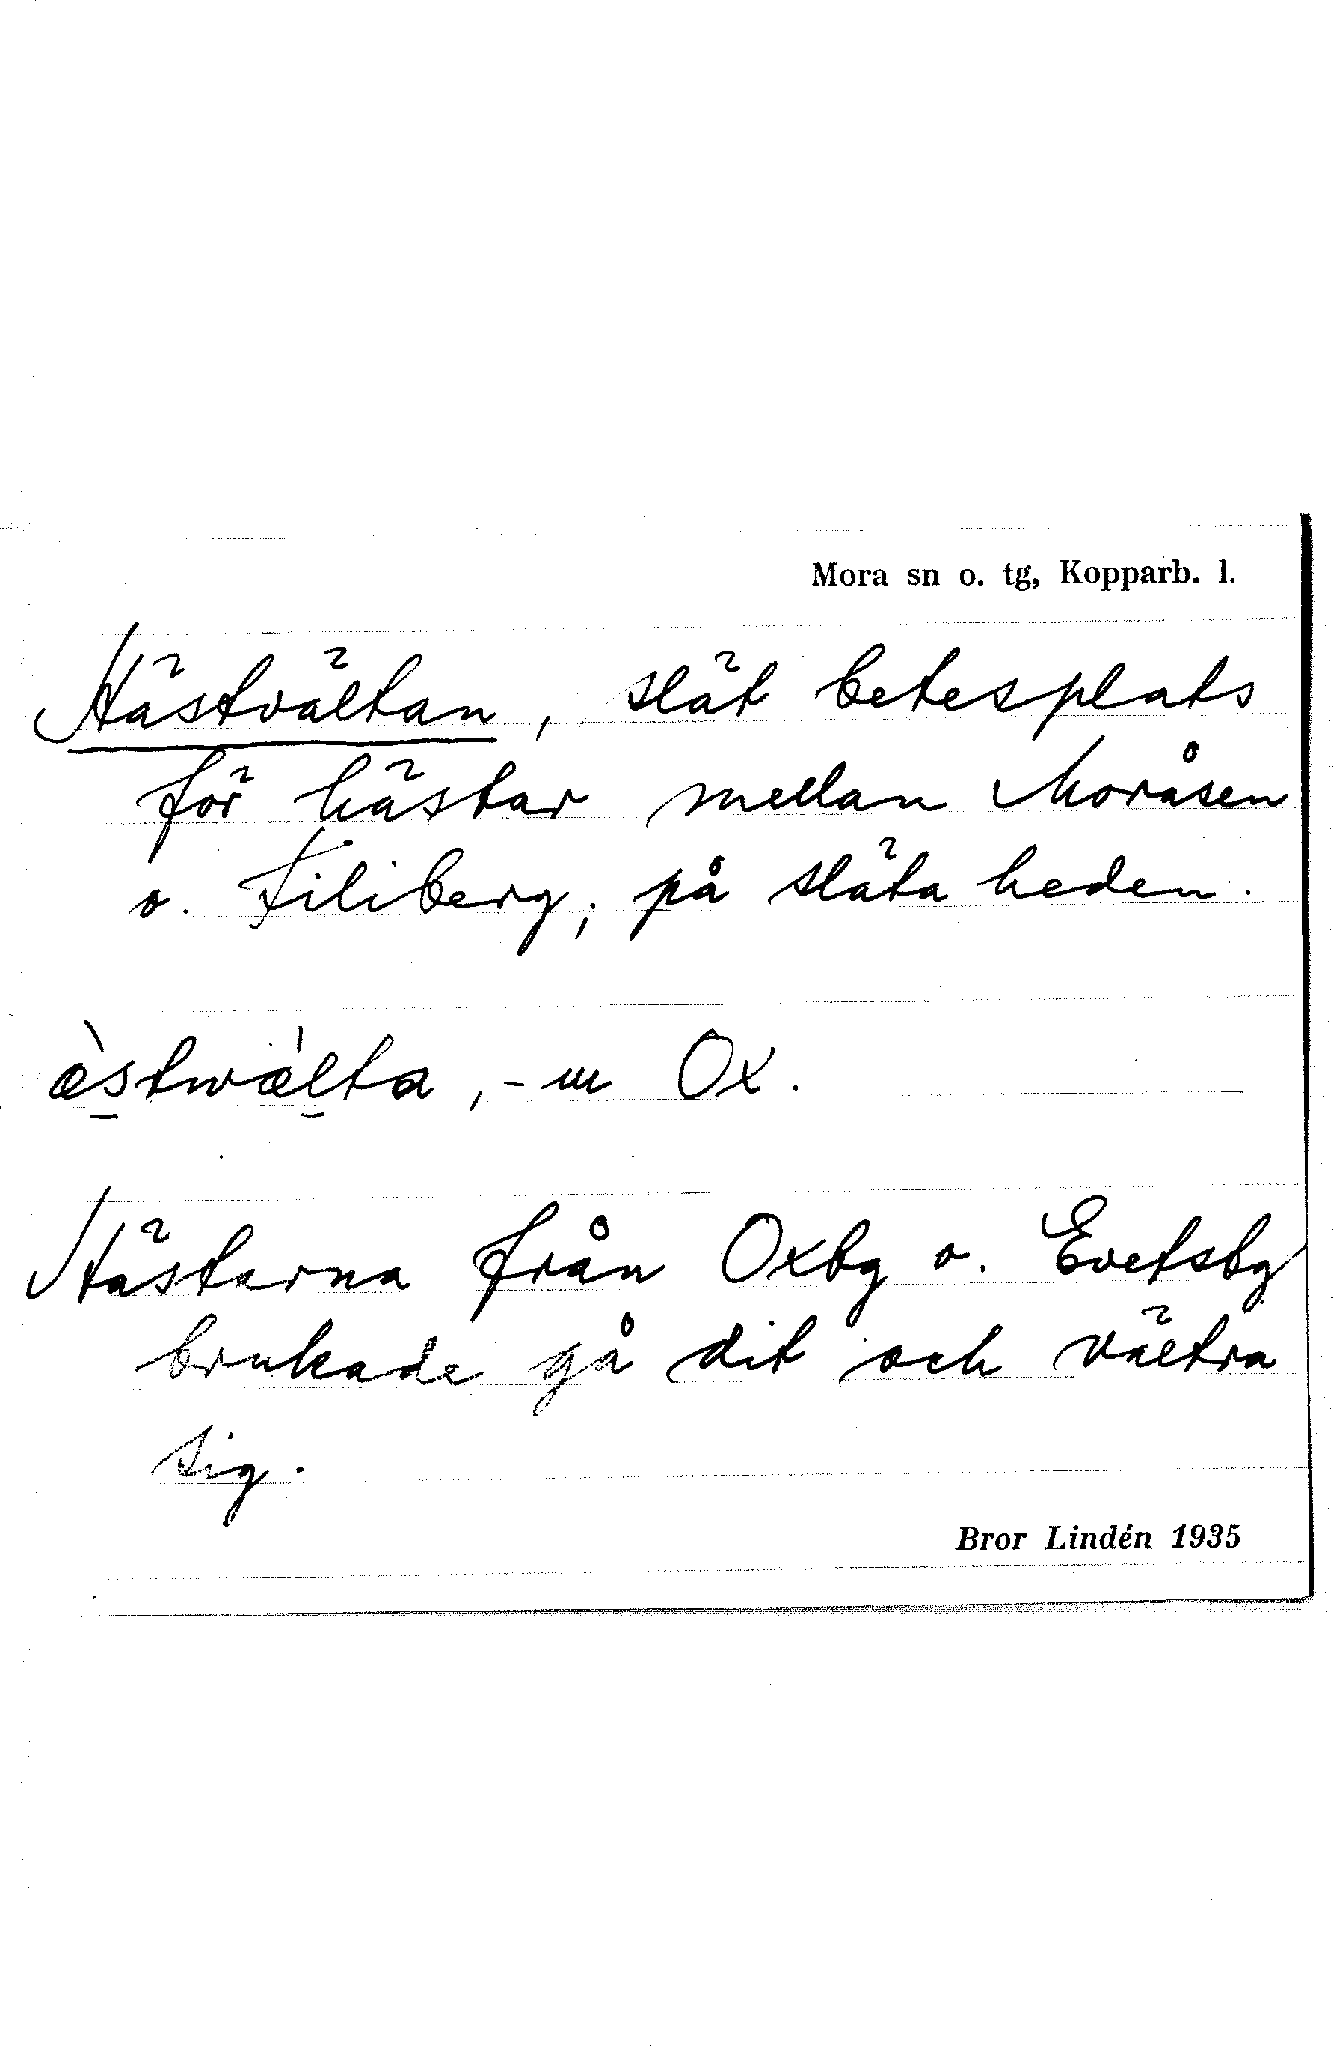 Mora sn o. tg, Kopparb. l.
Hästvältan, slät betesplats
för hästar mellan Moråsen
o. Filiberg, på släta heden.
æ̀stwæ̀lta, -m Ox.
Hästarna från Oxbg o. Evetsbg
brukade gå dit och vältra
sig.
Bror Lindén 1935